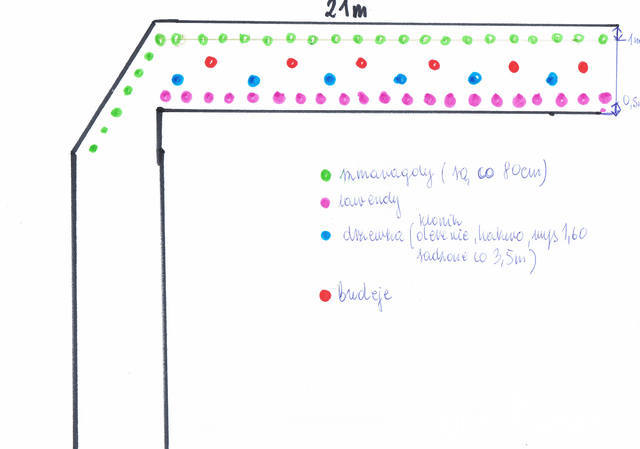 21m
1m
0,5m
szmaragdy (są, co 80cm)
lawendy
klonik
drzewka (derenie, hakuro, wys 1,60
sadzone co 3,5m)
budleje